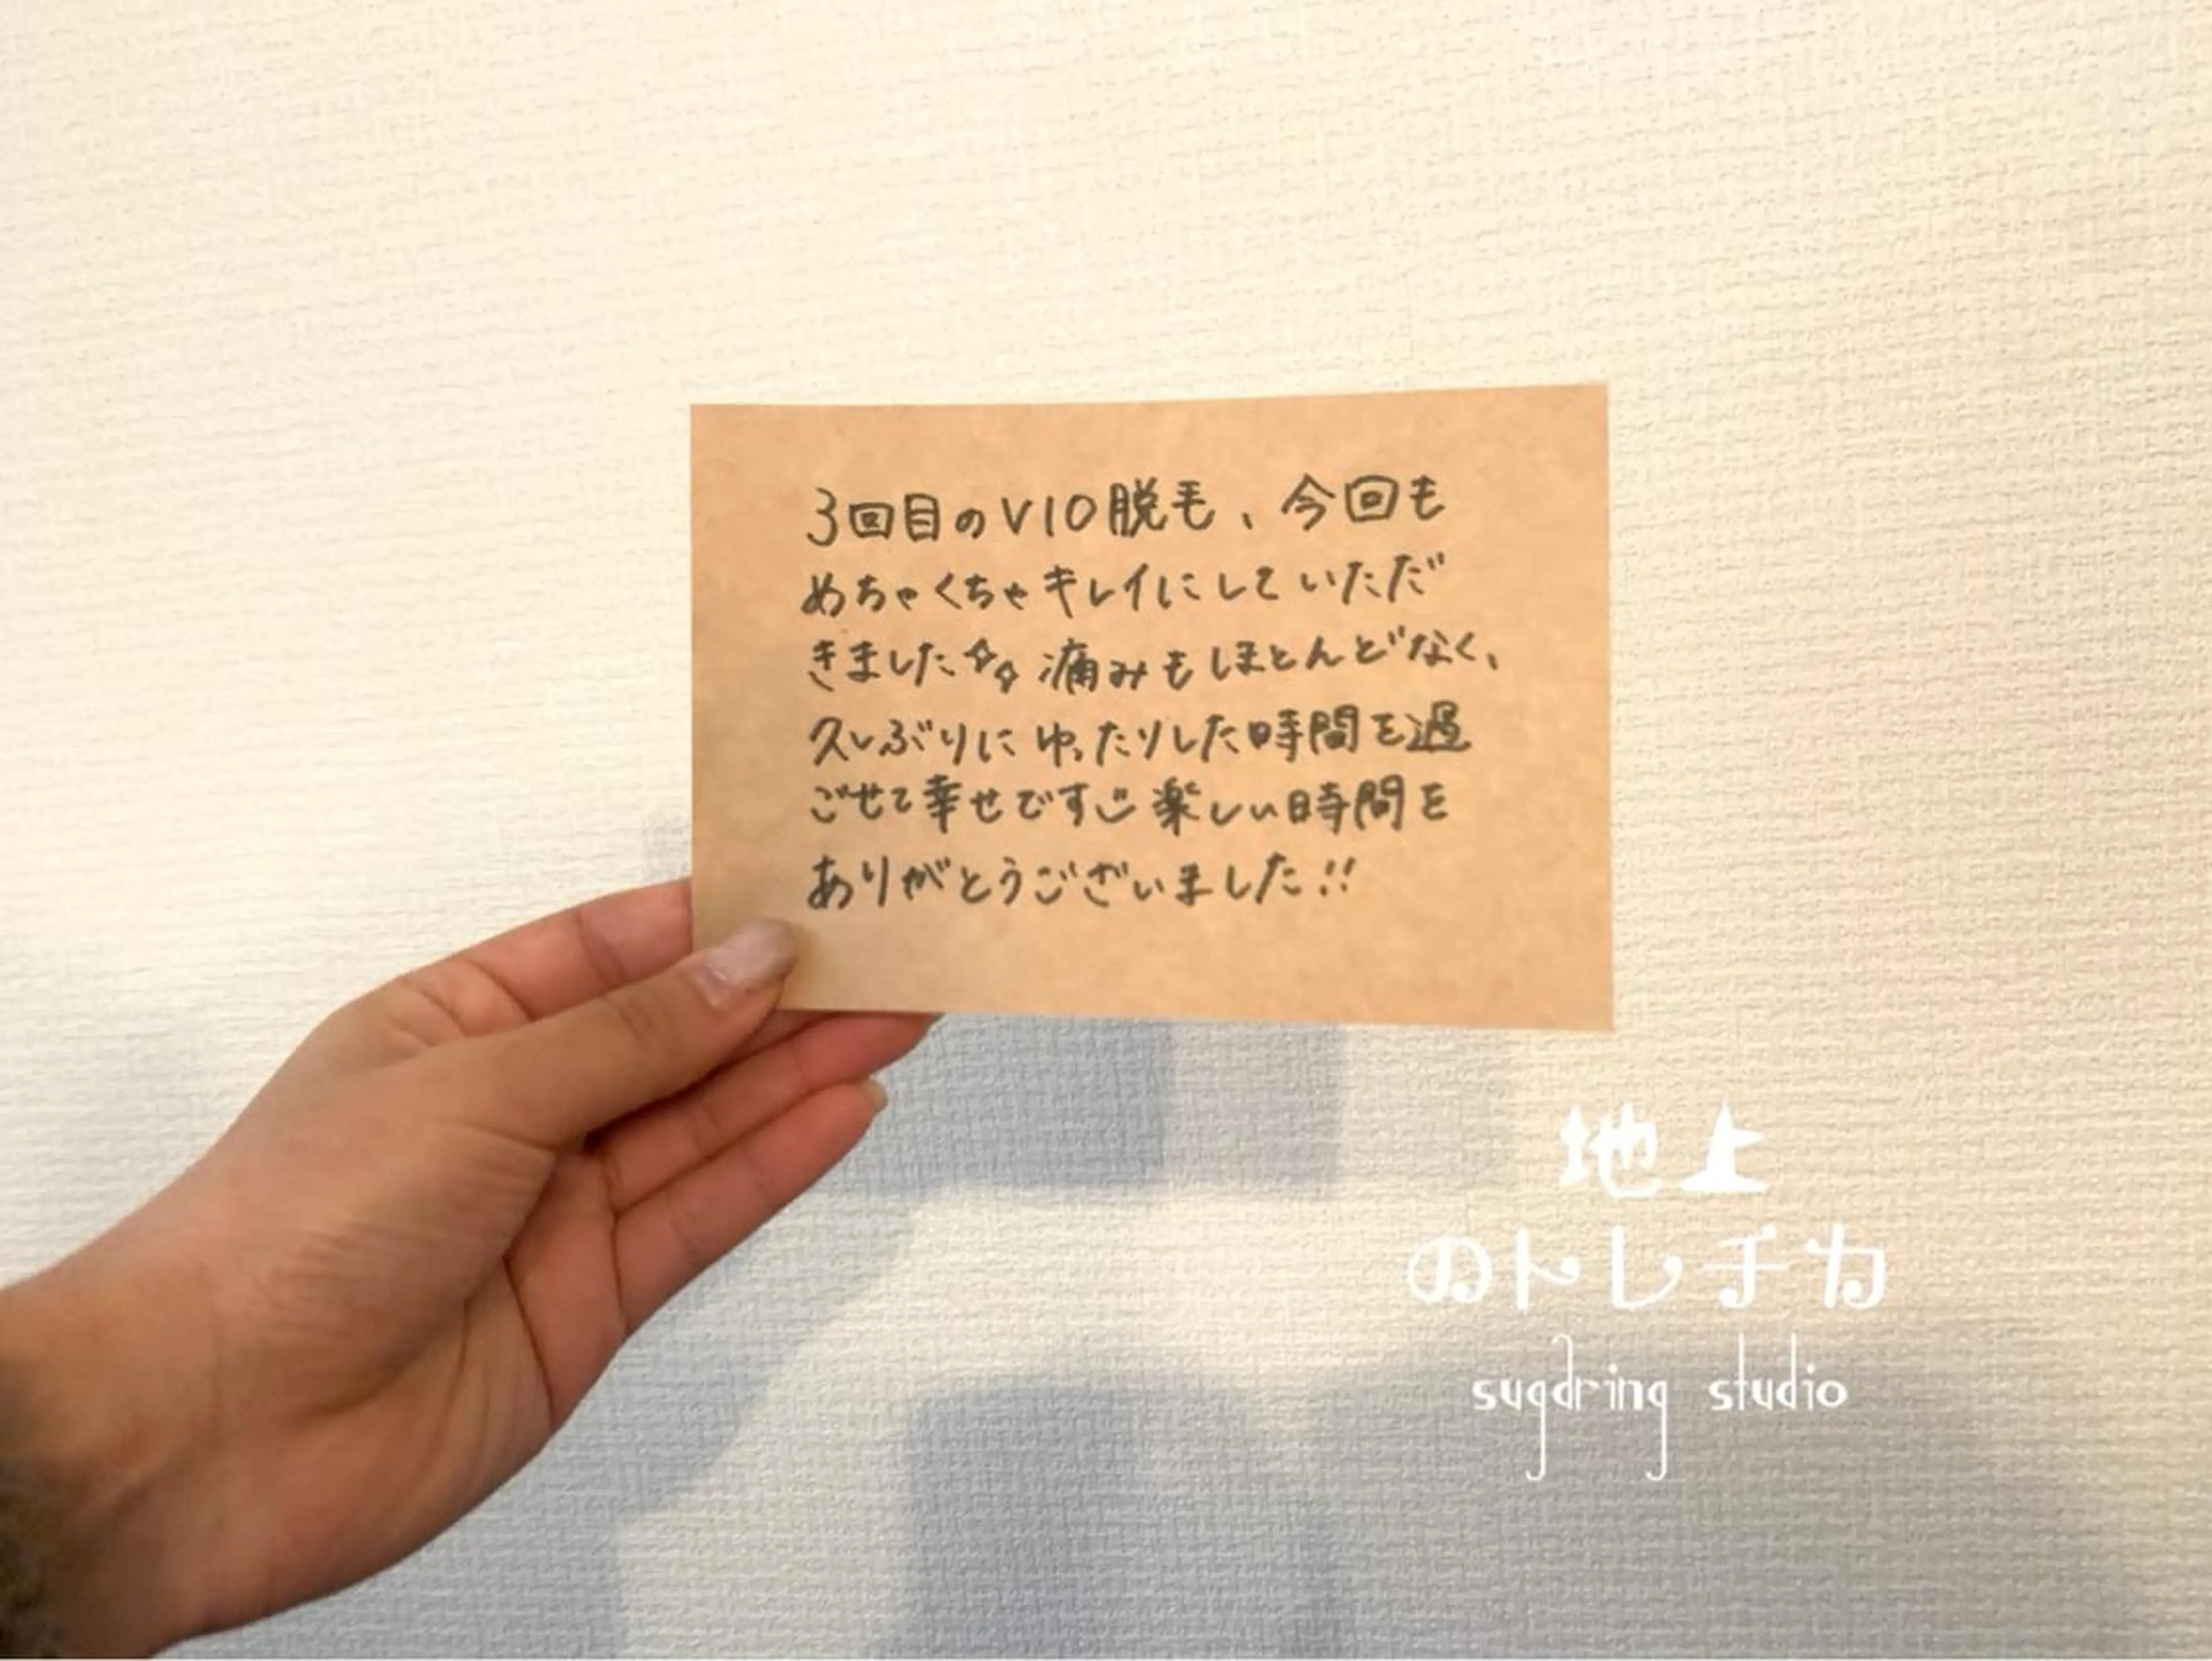 3回目のVIO脱毛、今回も
めちゃくちゃキレイにしていただ
きました☆☆ 痛みもほとんどなく、
久しぶりにゆったりした時間を過
ごせて幸せです 楽しい時間を
ありがとうございました!!
地上
のトレチカ
sugaring studio